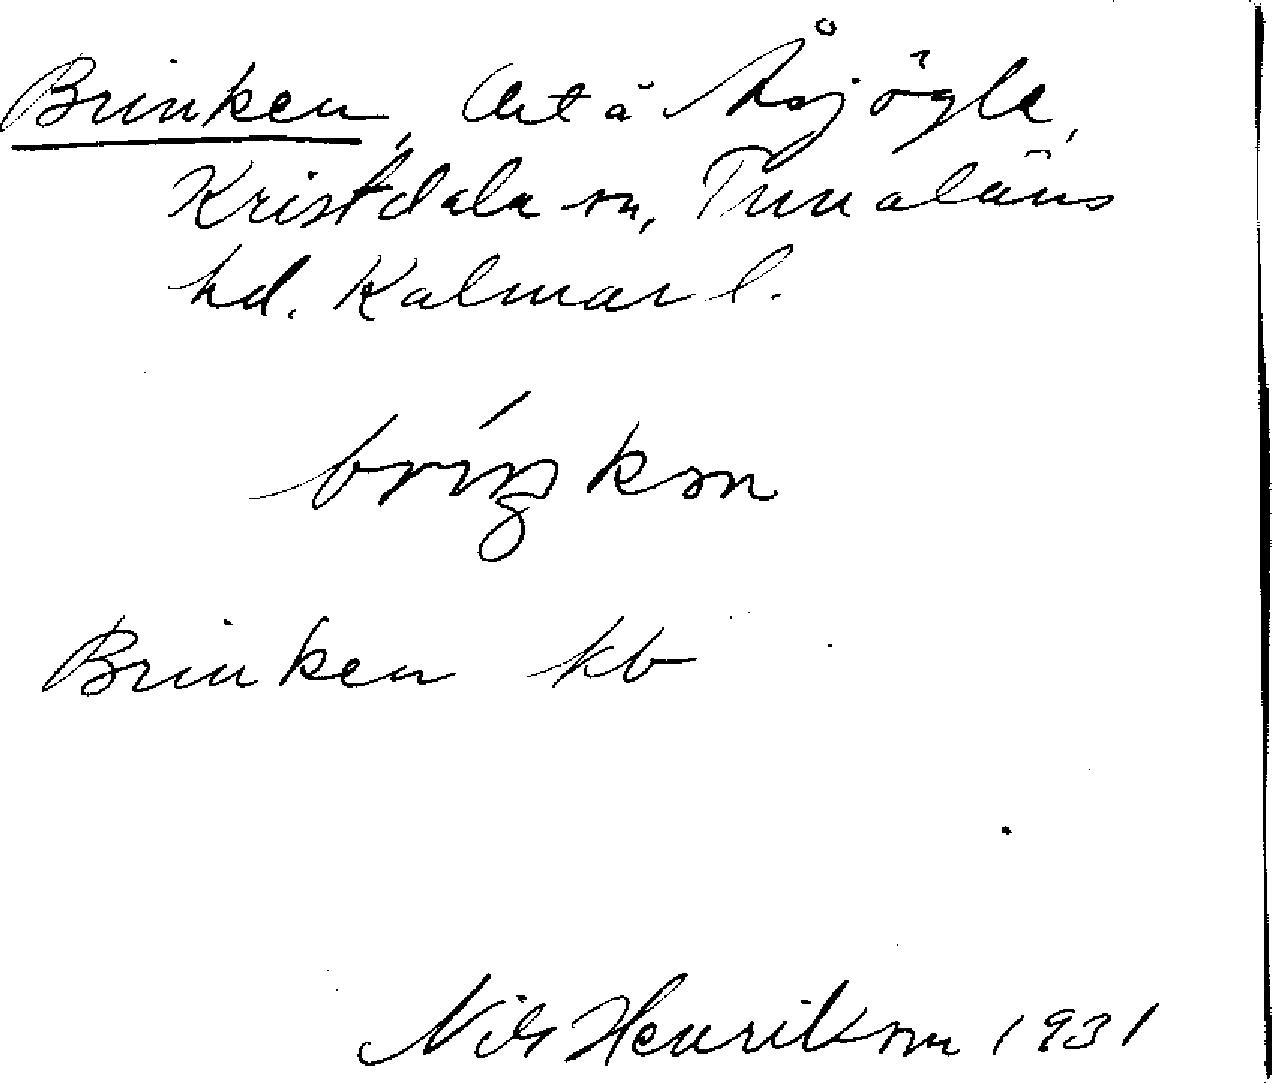 Brinken, Lht å Åsjögle,
Kristdala sn, Tunaläns
hd. Kalmar l.
bríŋkən
Brinken kb
Nils Henrikson 1931